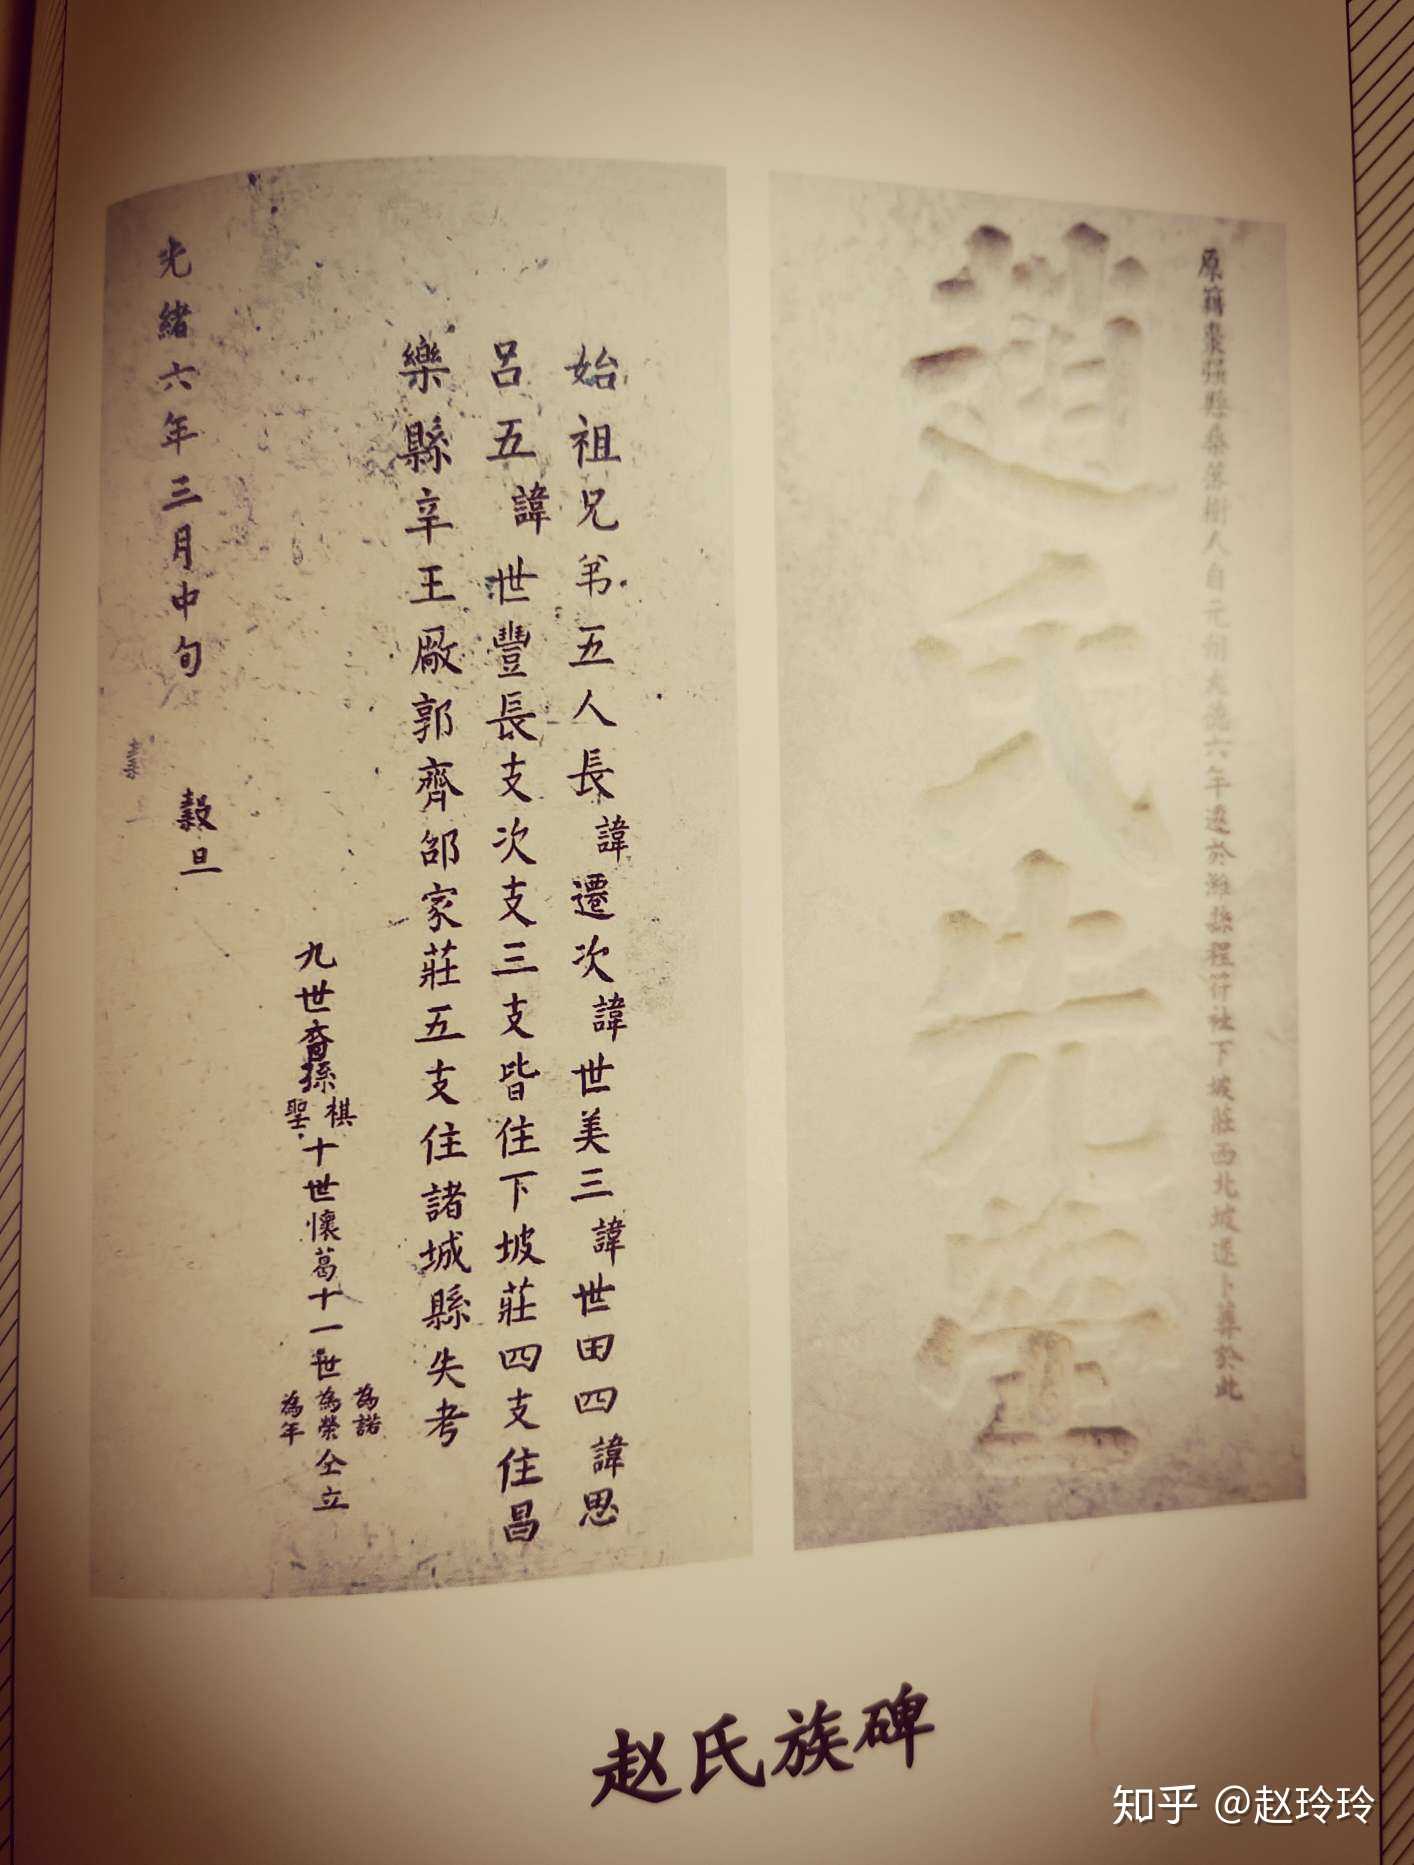 原籍棗强縣桑落樹人自元朝大德六年遷於濰縣程符社下坡莊西北坡遂卜葬於此
趙氏先塋
始祖兄弟五人長諱遷次諱世美三諱世田四諱思
呂五諱世豐長支次支三支皆住下坡莊四支住昌
樂縣辛王廠郭齊邵家莊五支住諸城縣失考
九世裔孫棋聖十世懷葛十一世為諾為榮為年仝立
光緒六年三月中旬 穀旦
赵氏族碑
知乎 @赵玲玲